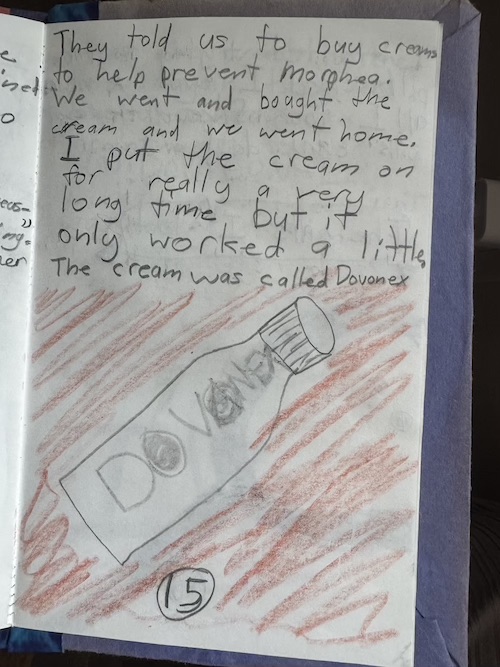 They told us to buy creams
to help prevent morphea.
We went and bought the
cream and we went home.
I put the cream on
for really a very
long time but it
only worked a little.
The cream was called Dovonex
DOVONEX
15
e
inet
o
eas-
"
ing-
her